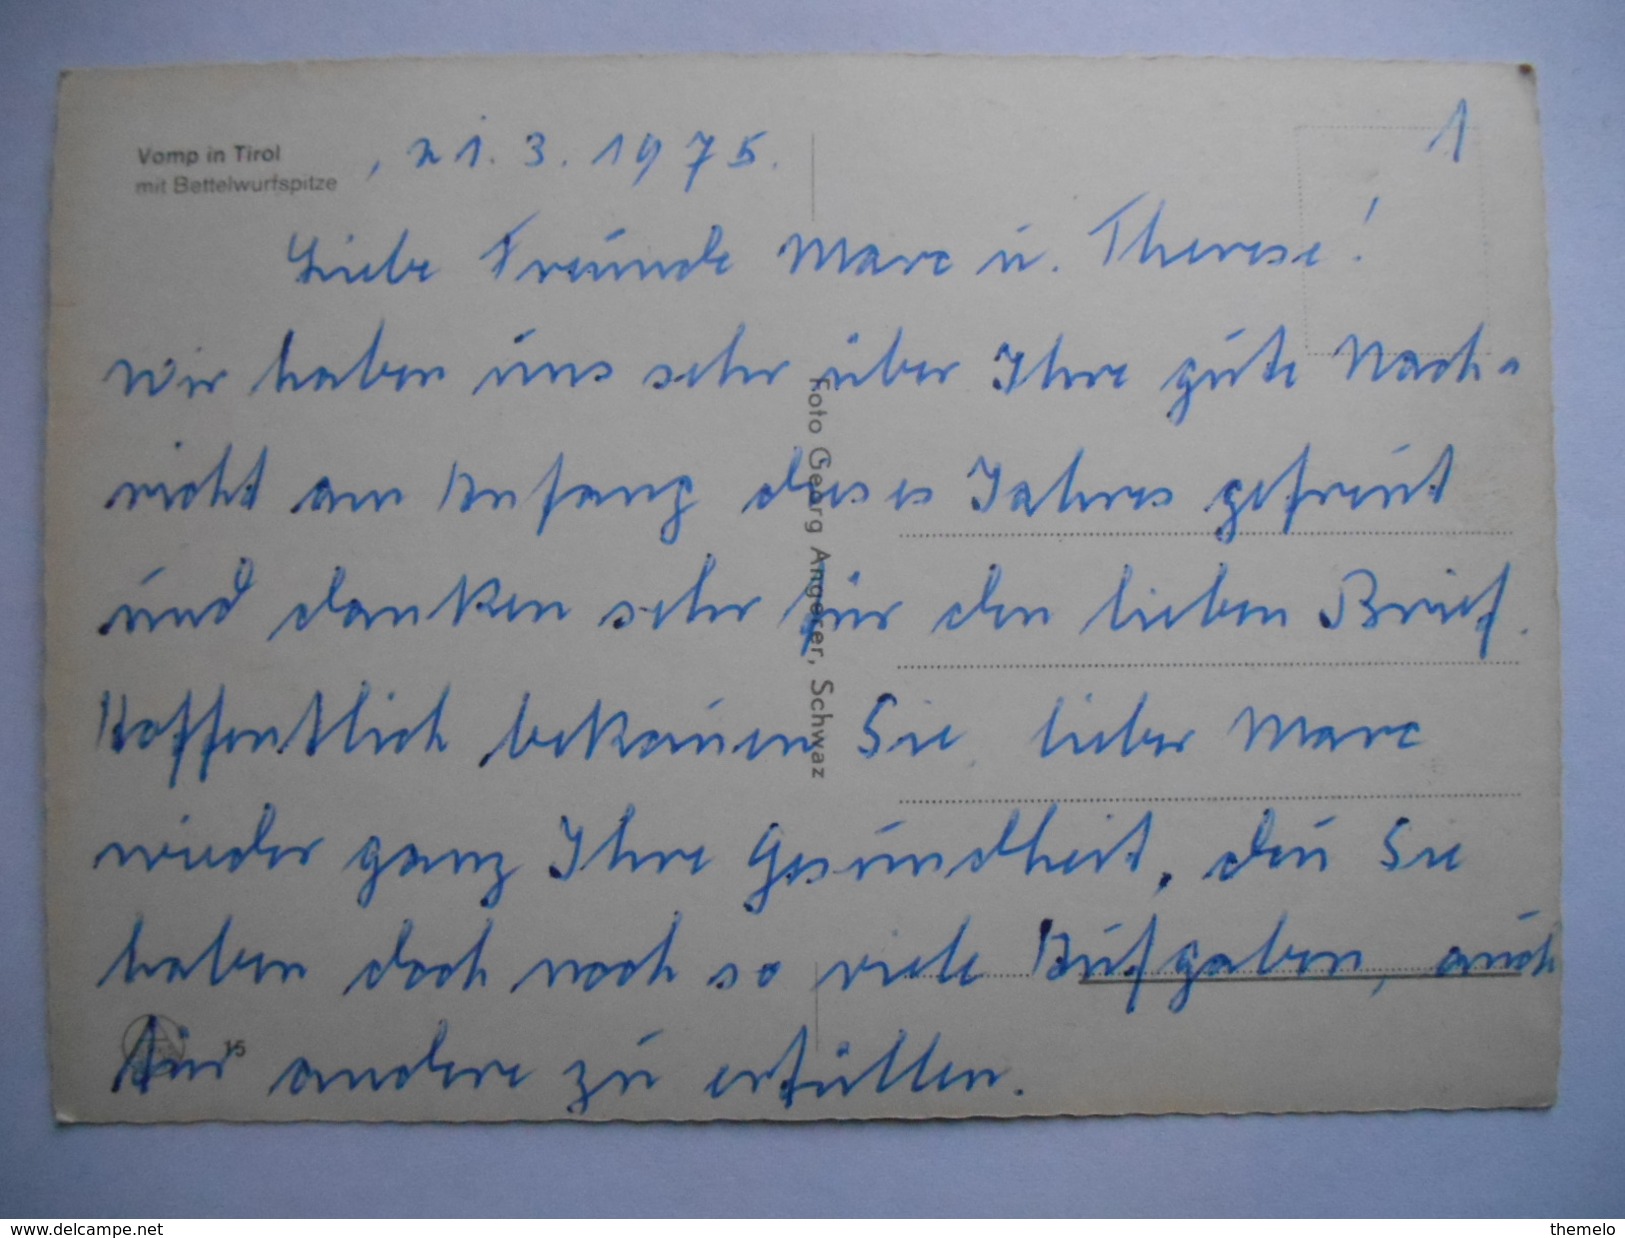 Vomp in Tirol
mit Bettelwurfspitze
, 21. 3. 1975.
1
Liebe Freunde Marc u. Therese!
Wir haben uns sehr über Ihre gute Nach-
richt am Anfang dieses Jahres gefreut
und danken sehr für den lieben Brief.
Hoffentlich bekom̅en Sie, lieber Marc
wieder ganz Ihre Gesundheit, den̅ Sie
haben doch noch so viele Aufgaben, auch
für andere zu erfüllen.
Foto Georg Angerer, Schwaz
15
www.delcampe.net
themelo